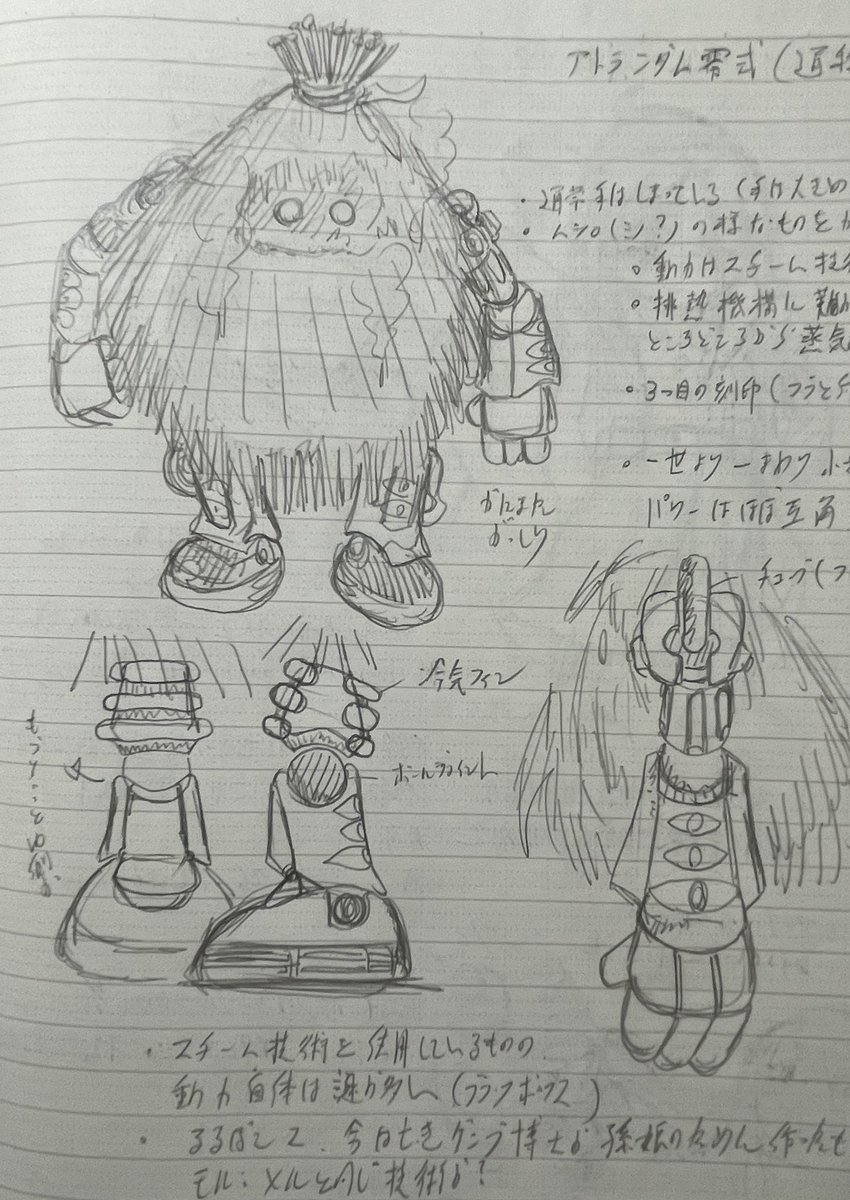 アトランダム零式(通称
・通常手はしまっている(手は大きめ
・ムシロ(シ?)の様なものをか
・動力はスチーム技術
・排熱機構に難が
ところどころから蒸気
・3つ目の刻印(
・一世より一まわり小さ
パワーはほぼ互角
がにまた
がっしり
チューブ(フ
冷気フィン
ボールジョイント
・スチーム技術を使用しているものの
動力自体は謎が多い(ブラックボックス)
・今は亡きゲンブ博士が孫娘のために作ったも
モル:メルと同じ技術か?